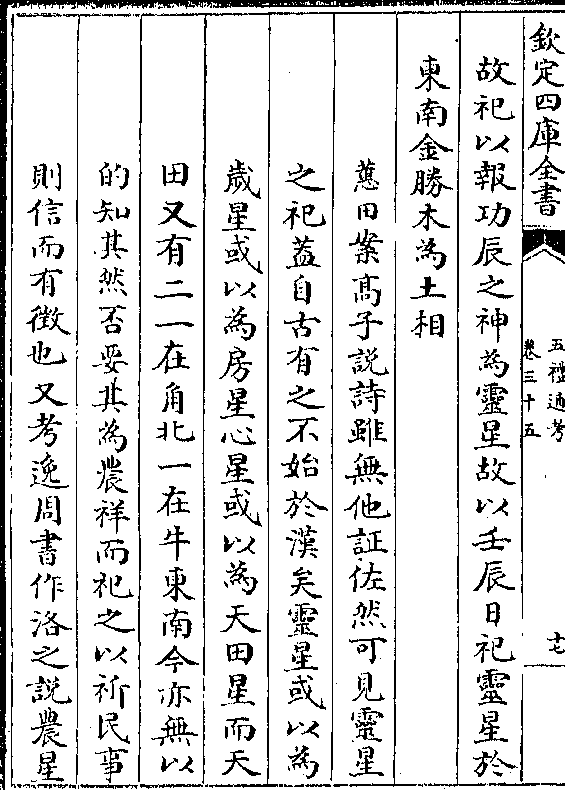 欽定四庫全書
五禮通考
卷三十五
十七
故祀以報功辰之神為靈星故以壬辰日祀靈星於
東南金勝木為土相
蕙田案高子説詩雖無他証佐然可見靈星
之祀蓋自古有之不始於漢矣靈星或以為
歲星或以為房星心星或以為天田星而天
田又有二一在角北一在牛東南今亦無以
的知其然否要其為農祥而祀之以祈民事
則信而有徴也又考逸周書作洛之説農星